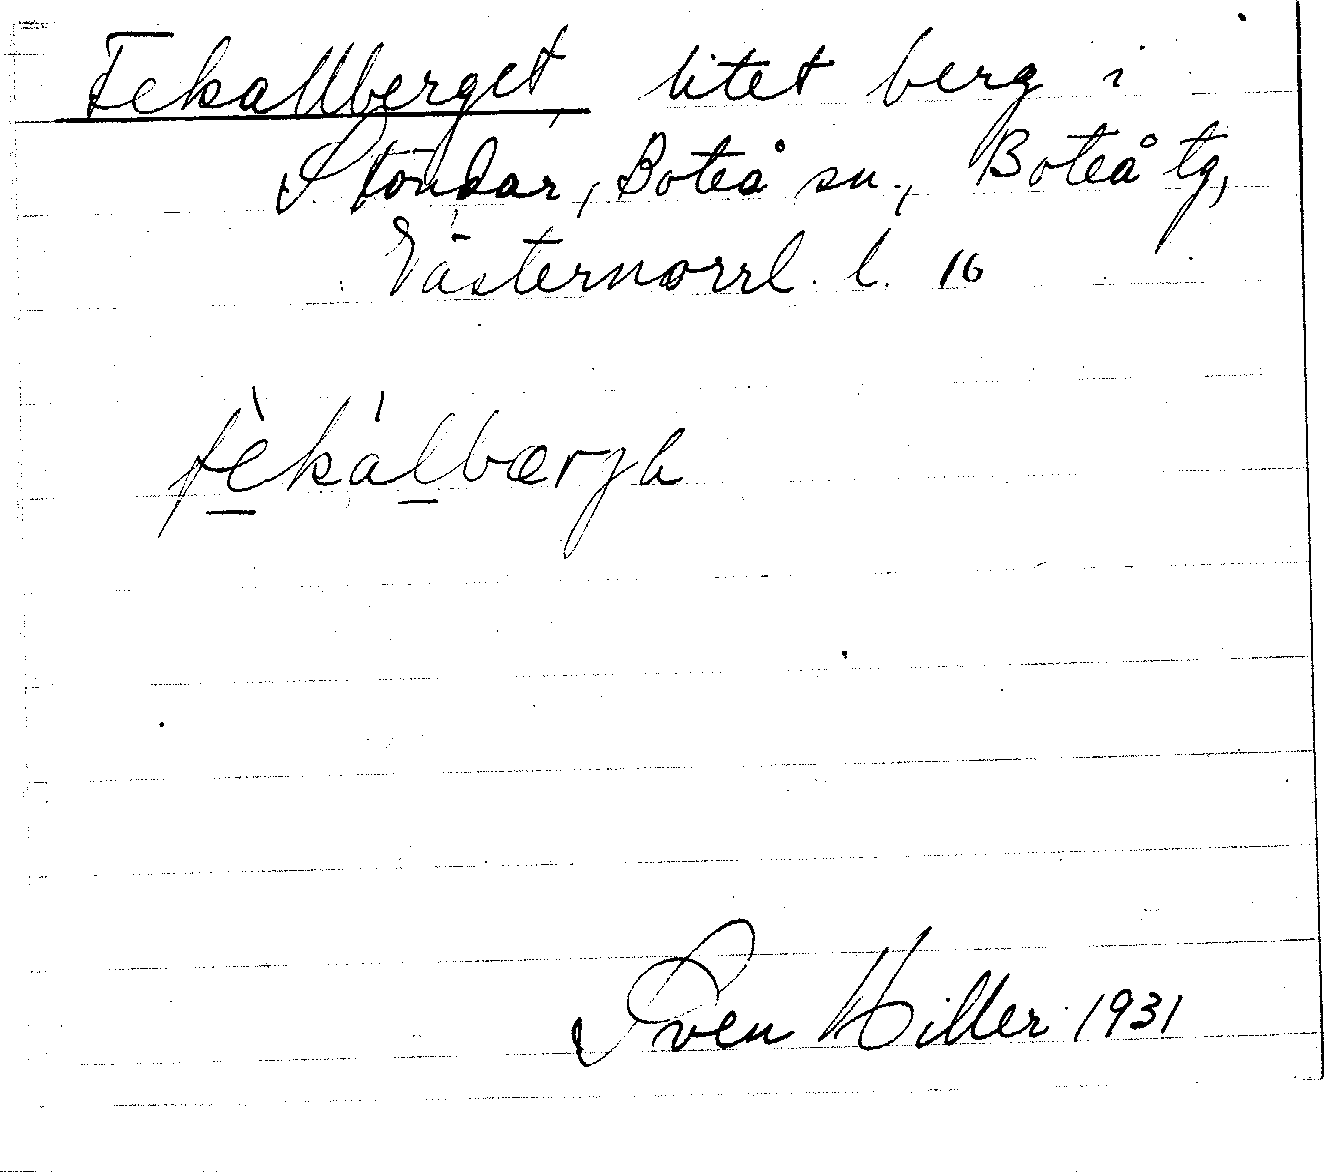 Fekallberget, litet berg i
Stöndar, Boteå sn., Boteå tg,
Västernorrl. l. 16
fèkálbærjə
Sven Hiller 1931